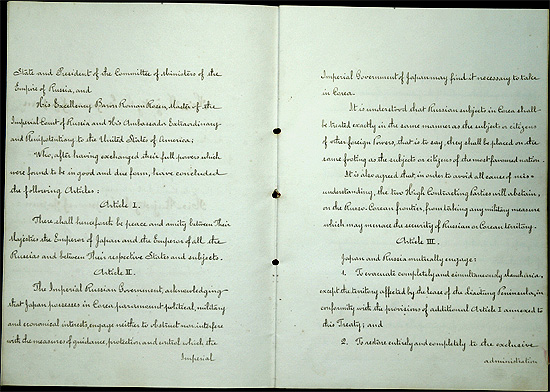 State and President of the Committee of Ministers of the
Empire of Russia, and
His Excellency Baron Roman Rosen, Master of the
Imperial Court of Russia and His Ambassador Extraordinary
and Plenipotentiary to the United States of America;
Who, after having exchanged their full powers which
were found to be in good and due form, have concluded
the following Articles:
Article I.
There shall henceforth be peace and amity between Their
Majesties the Emperor of Japan and the Emperor of all the
Russias and between Their respective States and subjects.
Article II.
The Imperial Russian Government, acknowledging
that Japan possesses in Corea paramount political, military
and economical interests, engage neither to obstruct nor interfere
with the measures of guidance, protection and control which the
Imperial
Imperial Government of Japan may find it necessary to take
in Corea.
It is understood that Russian subjects in Corea shall
be treated exactly in the same manner as the subjects or citizens
of other foreign Powers, that is to say, they shall be placed on the
same footing as the subjects or citizens of the most favoured nation.
It is also agreed that, in order to avoid all cause of mis-
understanding, the two High Contracting Parties will abstain,
on the Russo-Corean frontier, from taking any military measure
which may menace the security of Russian or Corean territory.
Article III.
Japan and Russia mutually engage:
1. To evacuate completely and simultaneously Manchuria
except the territory affected by the lease of the Liaotung Peninsula, in
conformity with the provisions of additional Article I annexed to
this Treaty; and
2. To restore entirely and completely to the exclusive
administration